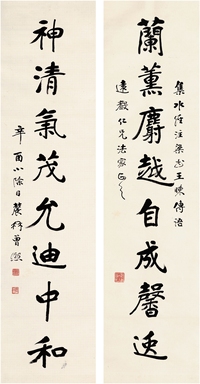 蘭薰麝越自成馨遠
集水經注集書王煉傳語
遠毅仁兄法家正之
神清氣茂允迪中和
辛酉小除日農髯曾熙